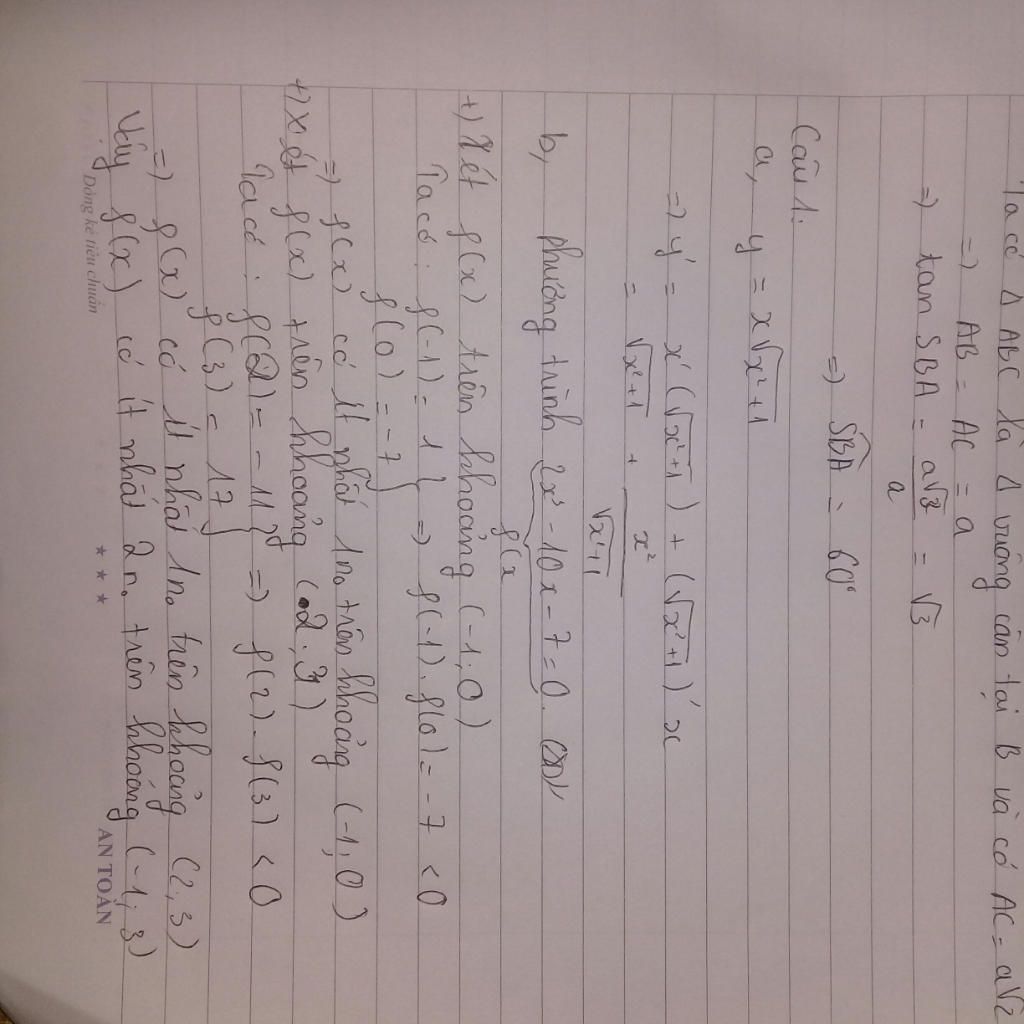 Ta có Δ ABC là Δ vuông cân tại B và có AC = a√2
=) AB = AC = a
=) tan SBA = a√3/a = √3
=) SBA = 60°
Câu 1:
a, y = x√x²+1
=) y' = x'(√x²+1) + (√x²+1)'x
= √x²+1 + x²/√x²+1
b, phương trình 2x³ - 10x - 7 = 0.
f(x
+) Xét f(x) trên khoảng (-1;0)
Ta có: f(-1) = 1 } =) f(-1). f(0) = -7 < 0
f(0) = -7
=) f(x) có ít nhất 1n₀ trên khoảng (-1;0)
+) Xét f(x) trên khoảng (2;3)
Ta có: f(2) = -11 } =) f(2). f(3) < 0
f(3) = 17
=) f(x) có ít nhất 1n₀ trên khoảng (2;3)
Vậy f(x) có ít nhất 2n₀ trên khoảng (-1;3)
Dòng kẻ tiêu chuẩn ★ ★ ★ AN TOÀN